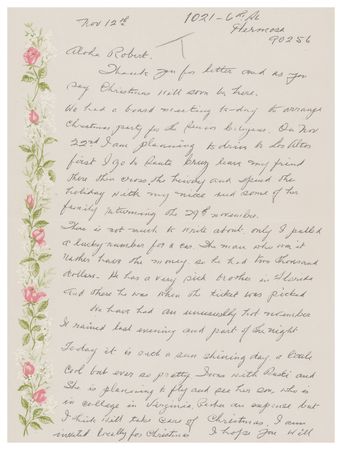 Nov 12th 1021 - 6th St
Hermosa
90256
Aloha Robert.
Thank you for letter and as you
say Christmas will soon be here.
We had a board meeting today to arrange
Christmas party for the Senior Citizens. On Nov
22nd I am planning to drive to Los Altos
first I go to Santa Cruz leave my friend
there then cross the highway and spend the
holiday with my niece and some of her
family returning the 29th november.
There is not much to write about, only I pulled
a lucky number for a car. The man who won it
rather have the money so he had two thousand
dollars. He has a very sick brother in Florida
and there he was when the ticket was picked
We have had an unusually hot november
It rained last evening and part of the night
Today it is such a sun shining day, a little
cool but ever so pretty. I was with and
She is planning to fly and see her son, who is
in college in Virginia, an expense but
I think will take care of Christmas. I am
invited locally for Christmas I hope you will